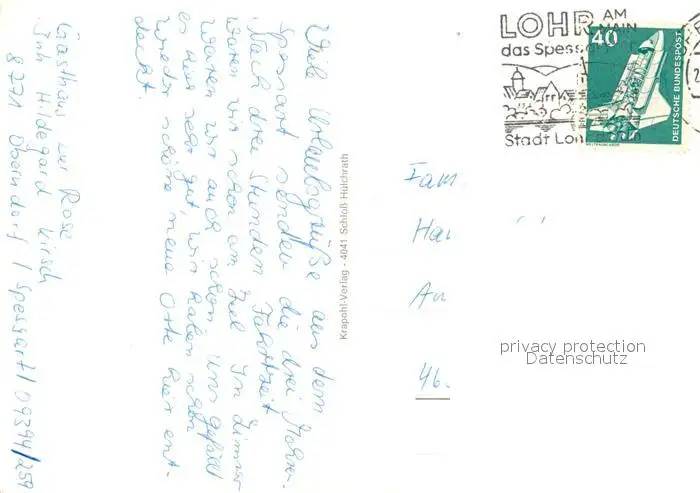 Gasthaus zur Rose
Inh Hildegard Kirsch
8771 Oberndorf / Spessart / 09394/259
Viele Urlaubsgrüße aus dem
Spessart senden die drei
Nach drei Stunden Fahrtzeit
waren wir schon am Ziel. In
waren wir auch schon. Uns gefällt
es hier sehr gut, wir haben schon
wieder schöne neue Orte hier ent-
deckt.
Krapohl-Verlag - 4041 Schloß Hülchrath
LOHR AM MAIN
das Spessart
Stadt Lohr
40
DEUTSCHE BUNDESPOST
WELTRAUMLABOR
Fam.
An
46.
privacy protection
Datenschutz